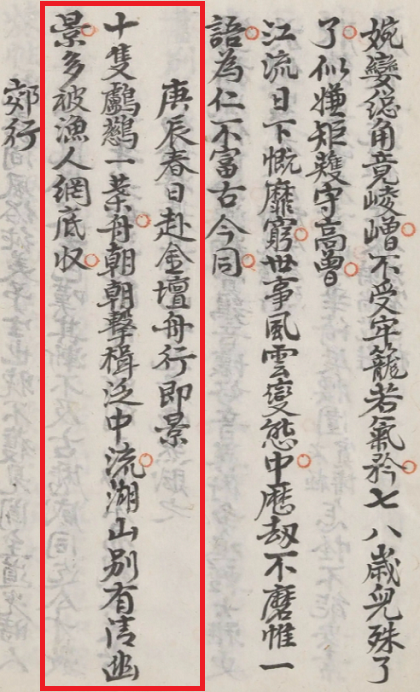 婉孌總角竟崚嶒不受牢籠若氣矜七八歲兒殊了
了似嫌矩矱守高曾
江流日下慨靡窮世事風雲變態中歷劫不磨惟一
語為仁不富古今同
庚辰春日赴金壇舟行即景
十隻鸕鷀一葉舟朝朝擊楫泛中流湖山別有清幽
景多被漁人網底収
郊行